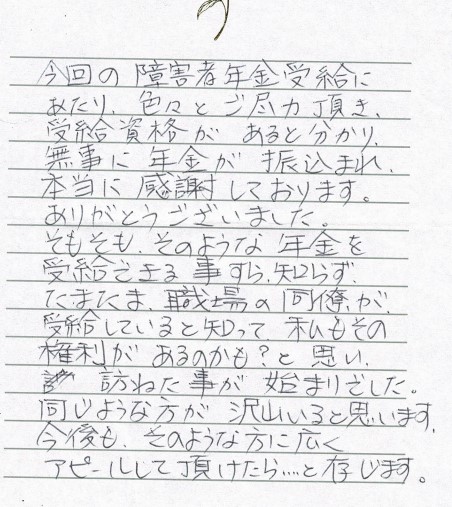 今回の障害者年金受給に
あたり、色々とご尽力頂き、
受給資格が あると分かり、
無事に 年金が 振込まれ、
本当に 感謝しております。
ありがとうございました。
そもそも、そのような 年金を
受給できる 事すら、知らず、
たまたま、職場の同僚が、
受給していると知って、私もその
権利が あるのかも?と 思い、
訪ねた 事が 始まりでした。
同じような方が 沢山いると思います。
今後も、そのような方に広く
アピールして頂けたら…と存じます。